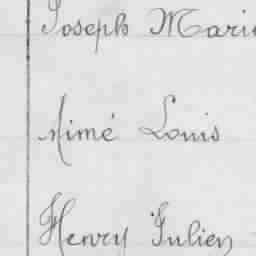 Joseph Marie
Aimé Louis
Henry Julien